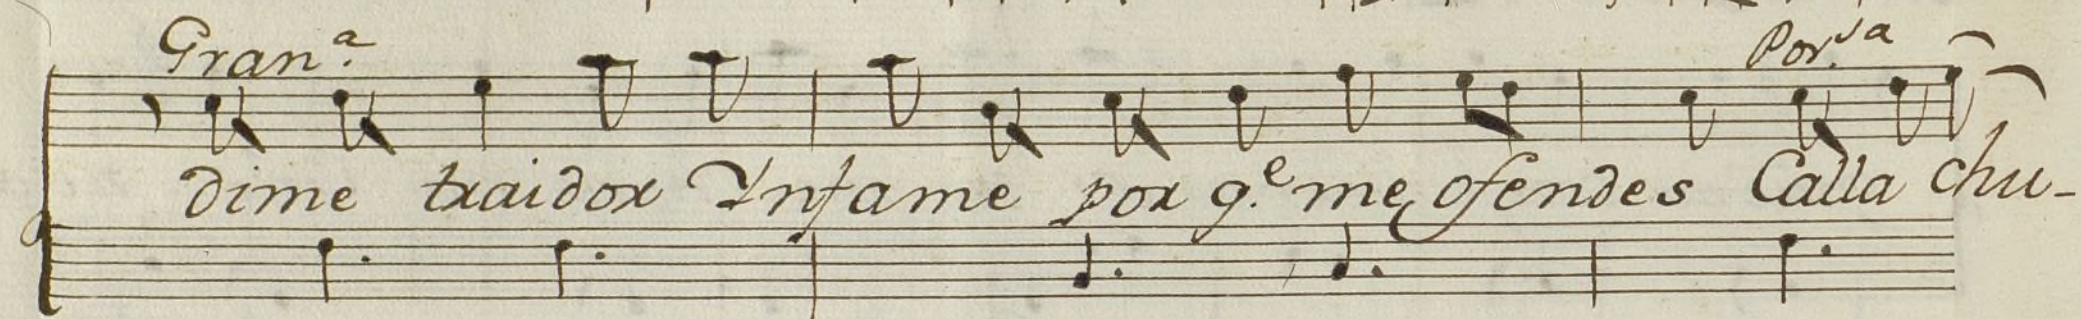 Gran.ª Por.ᵃ
dime traidor Ynfame por q.ᵉ me ofendes Calla chu-